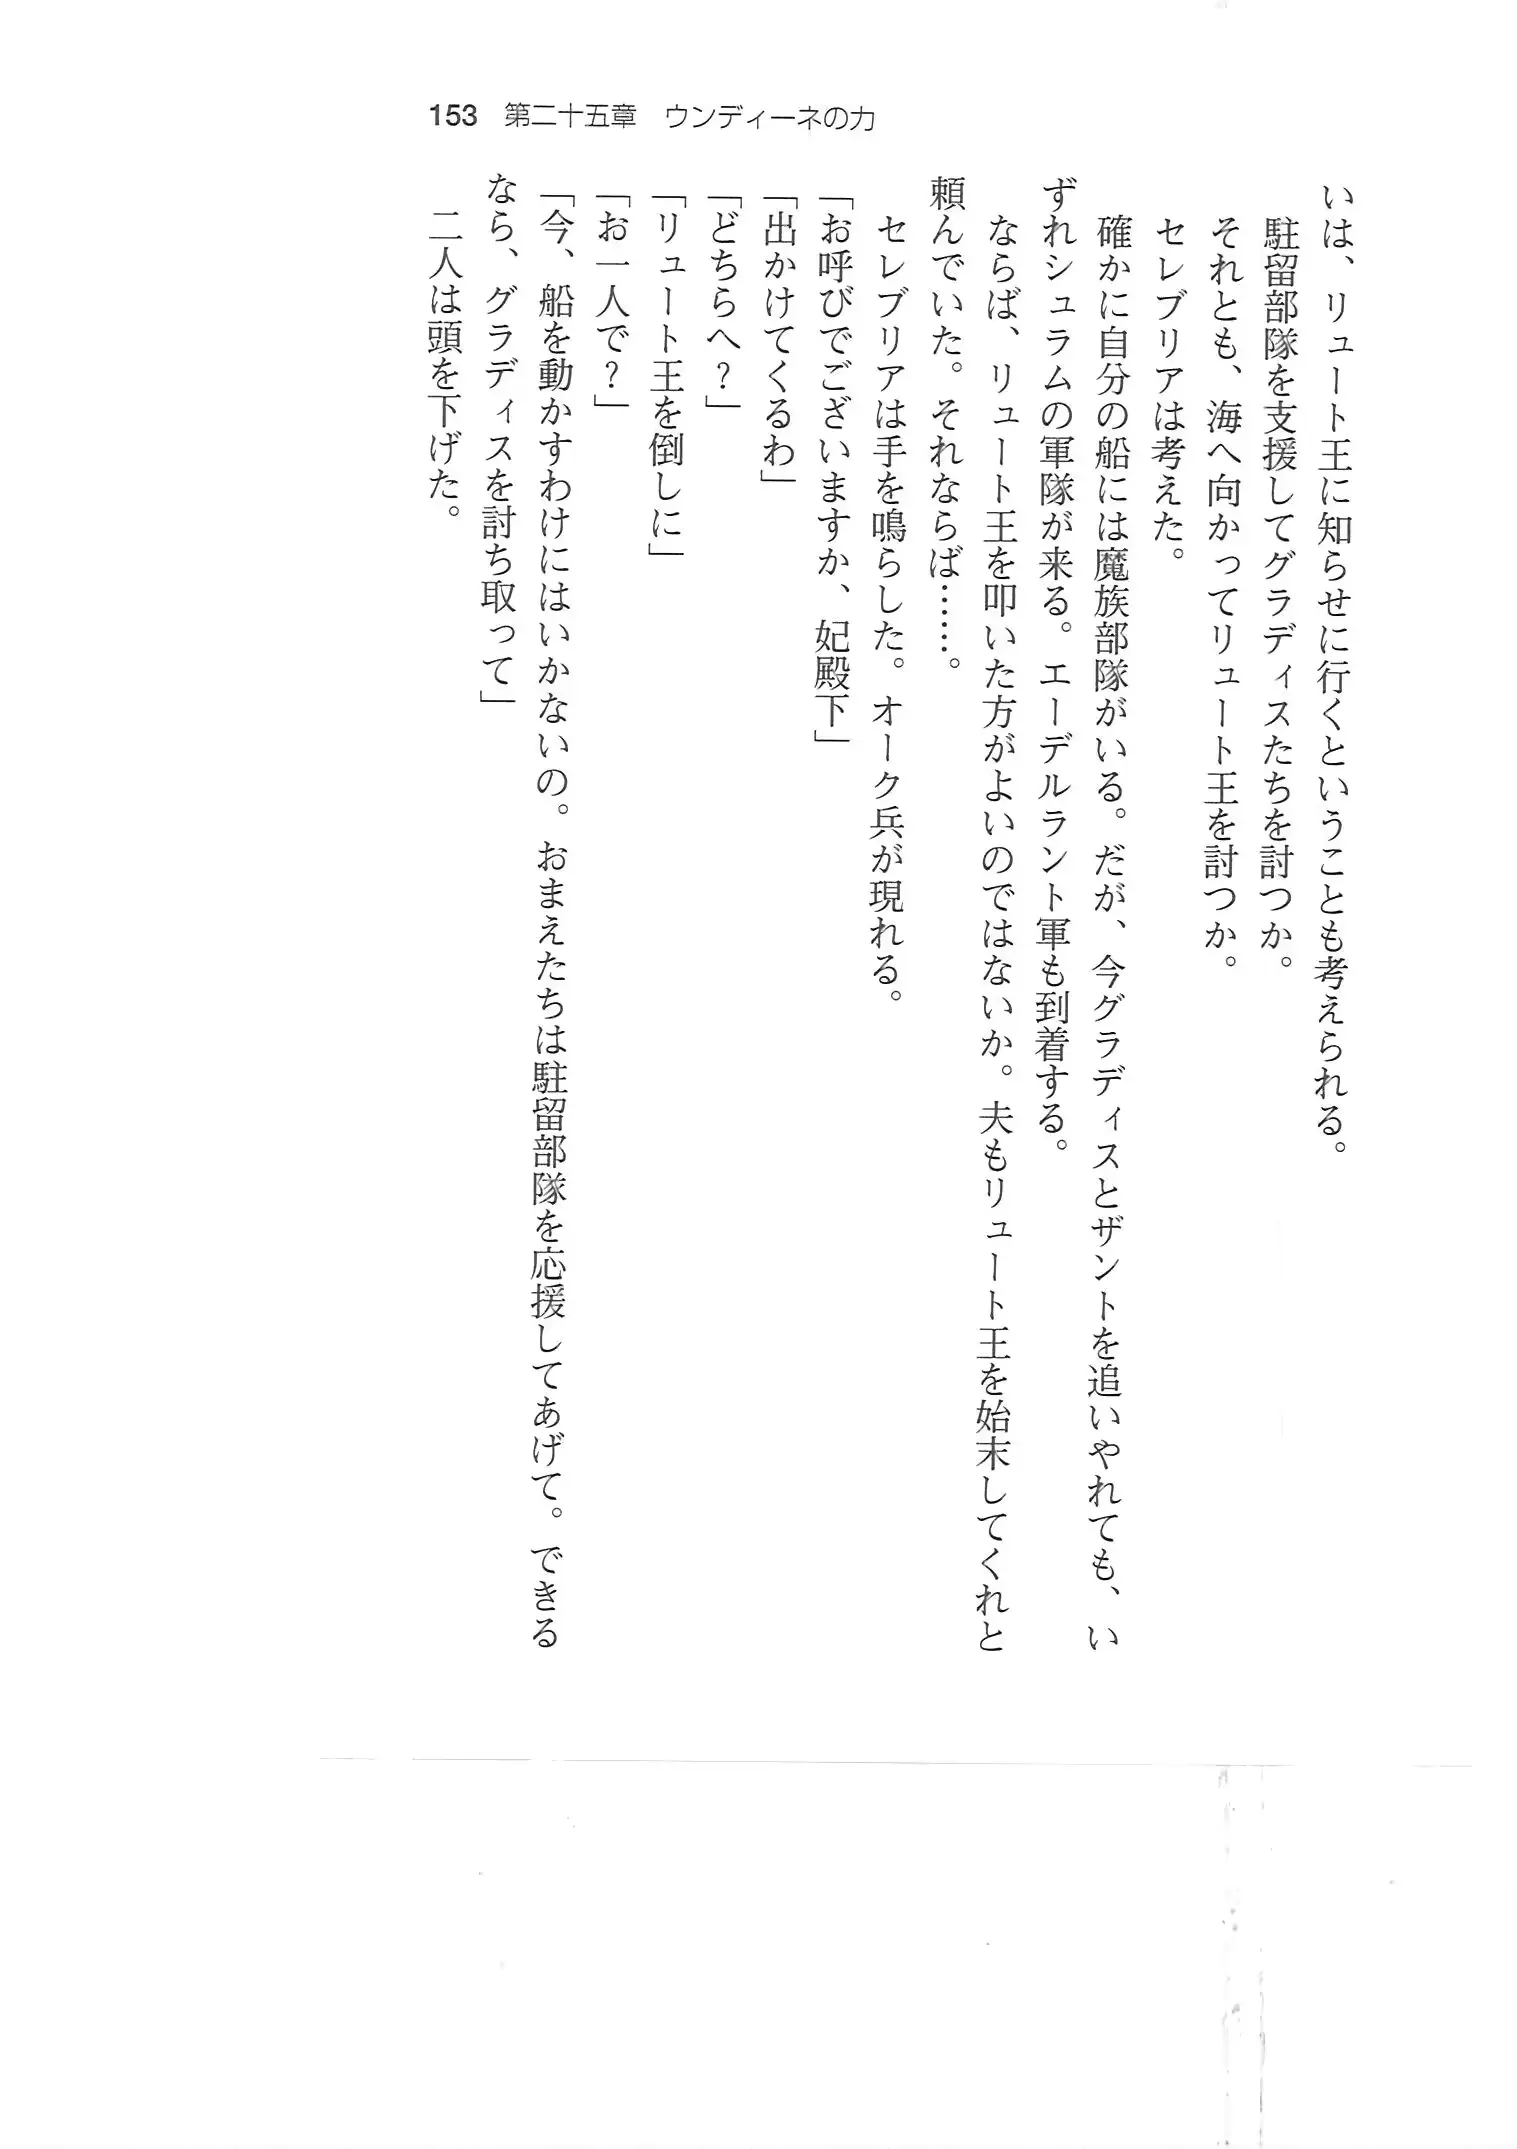 153 第二十五章 ウンディーネの力
いは、リュート王に知らせに行くということも考えられる。
　駐留部隊を支援してグラディスたちを討つか。
　それとも、海へ向かってリュート王を討つか。
　セレブリアは考えた。
　確かに自分の船には魔族部隊がいる。だが、今グラディスとザントを追いやれても、い
ずれシュラムの軍隊が来る。エーデルラント軍も到着する。
　ならば、リュート王を叩いた方がよいのではないか。夫もリュート王を始末してくれと
頼んでいた。それならば……。
　セレブリアは手を鳴らした。オーク兵が現れる。
「お呼びでございますか、妃殿下」
「出かけてくるわ」
「どちらへ？」
「リュート王を倒しに」
「お一人で？」
「今、船を動かすわけにはいかないの。おまえたちは駐留部隊を応援してあげて。できる
なら、グラディスを討ち取って」
　二人は頭を下げた。